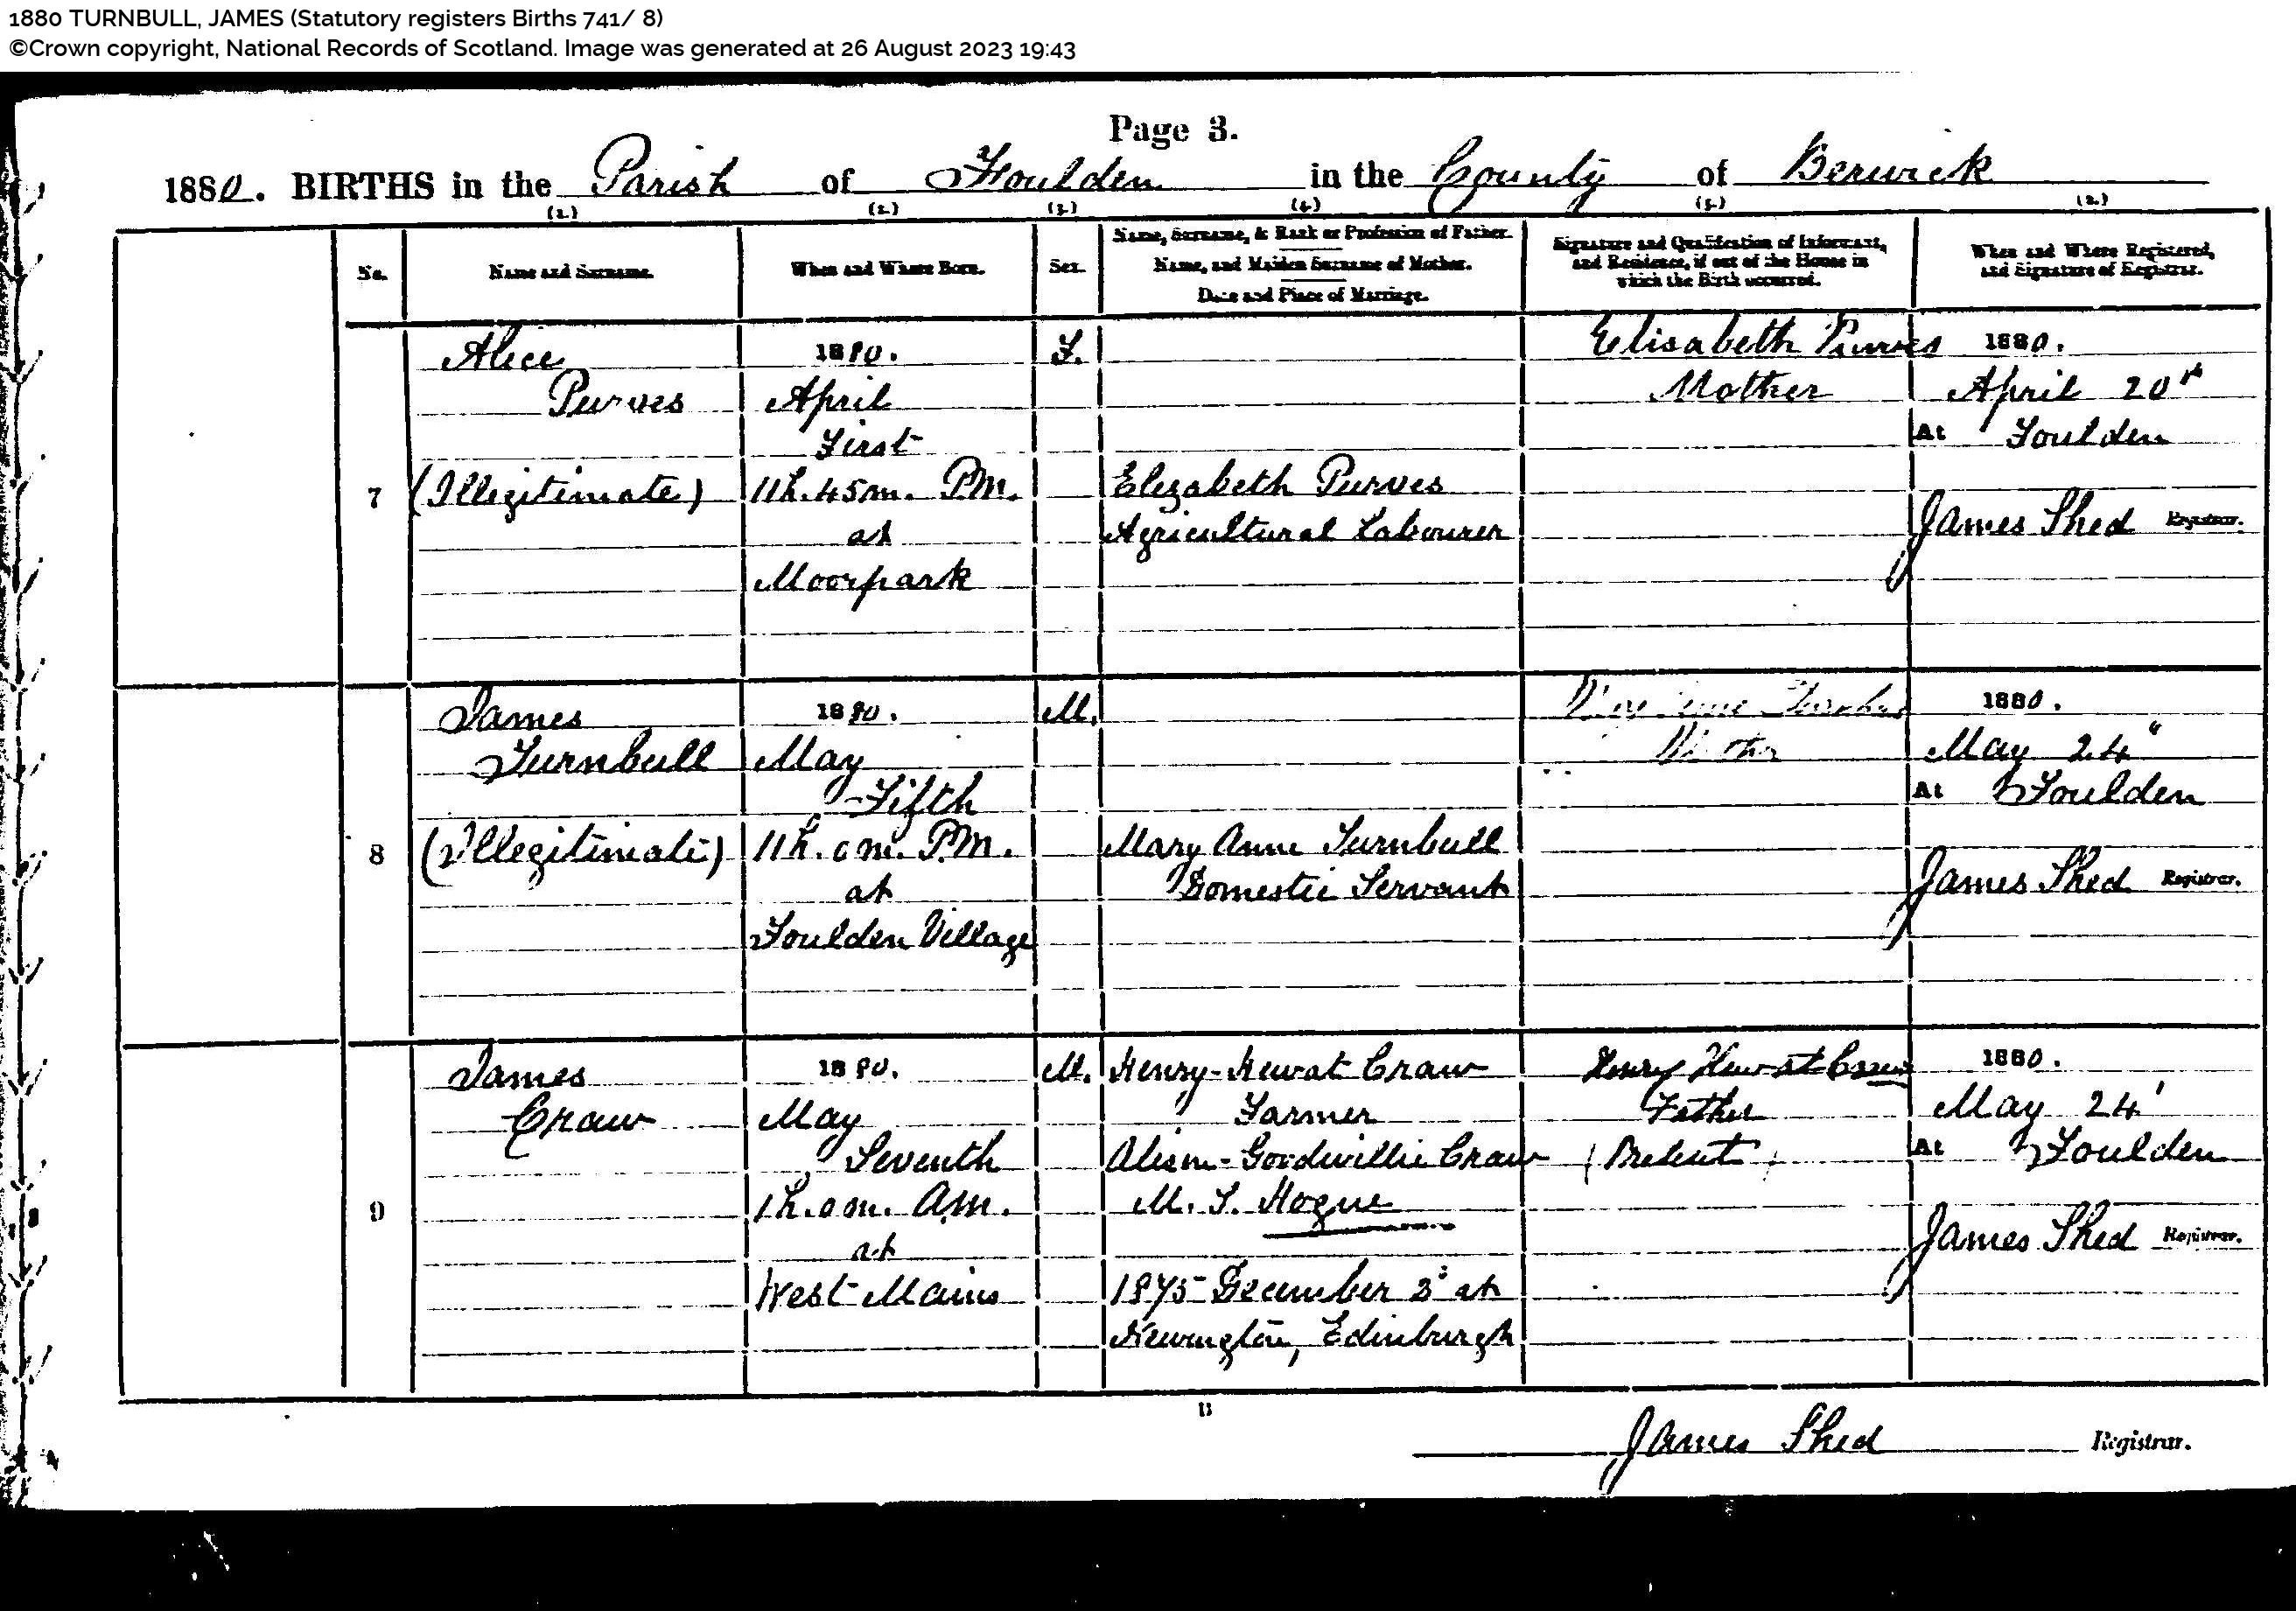 1880 TURNBULL, JAMES (Statutory registers Births 741/ 8)
©Crown copyright, National Records of Scotland. Image was generated at 26 August 2023 19:43
Page 3.
1880. BIRTHS in the Parish of Foulden in the County of Berwick
(1.) (2.) (3.) (4.) (5.) (6.)
No.
Name and Surname.
When and Where Born.
Sex.
Name, Surname, & Rank or Profession of Father.
Name, and Maiden Surname of Mother.
Date and Place of Marriage.
Signature and Qualification of Informant,
and Residence, if out of the House in
which the Birth occurred.
When and Where Registered,
and Signature of Registrar.
7
Alice
Purves
(Illegitimate)
1880.
April
First
11h. 45m. P.M.
at
Moorpark
F.
Elizabeth Purves
Agricultural Labourer
Elisabeth Purves
Mother
1880.
April 20th
At Foulden
James Shed Registrar.
8
James
Turnbull
(Illegitimate)
1880.
May
Fifth
11h. 0m. P.M.
at
Foulden Village
M.
Mary Anne Turnbull
Domestic Servant
Mother
1880.
May 24"
At Foulden
James Shed Registrar.
9
James
Craw
1880.
May
Seventh
1h. 0m. A.M.
at
West Mains
M.
Henry-Hewat Craw
Farmer
Alison-Goodwillie Craw
M. S. Hogue
1875 December 2d at
Newington, Edinburgh
Henry Hewat Craw
Father
(Present)
1880.
May 24'
At Foulden
James Shed Registrar.
James Shed Registrar.